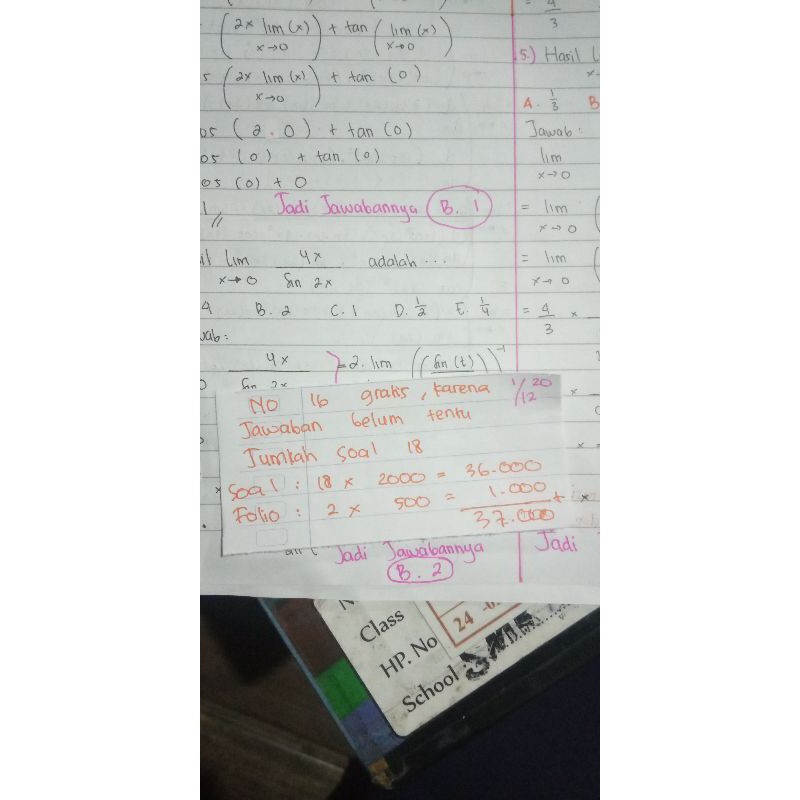 (2x lim (x)) + tan (lim (x))
x→0 x→0
(2x lim (x)) + tan (0)
x→0
os (2.0) + tan (0)
os (0) + tan (0)
os (0) + 0
1 // Jadi Jawabannya B. 1
lim 4x adalah ...
x→0 sin 2x
B. 2 C. 1 D. 1/2 E. 1/4
wab:
4x = 2. lim ((sin (t)))⁻¹
sin 2x
NO 16 gratis, karena 1/12 20
Jawaban belum tentu
Jumlah soal 18
Soal : 18 x 2000 = 36.000
Folio : 2 x 500 = 1.000 +
37.000
Jadi Jawabannya
B. 2
4
3
5.) Hasil
A. 1/3 B
Jawab:
lim
x→0
= lim
x→0
= lim
x→0
= 4 x
3
x
x
Jadi
Class
HP. No
24
School :